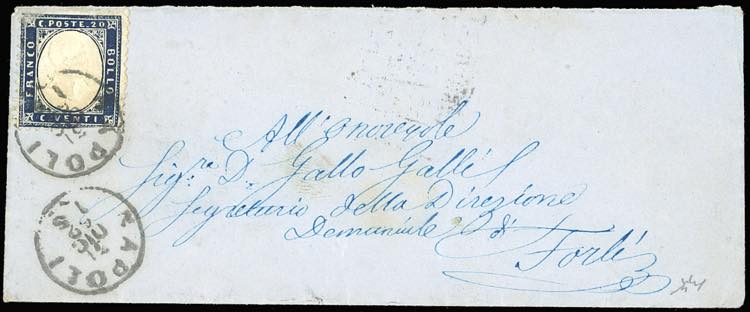 C. POSTE. 20
FRANCO
BOLLO
C. VENTI
NAPOLI
NAPOLI
All'Onorevole
Sig.re D. Gallo Galli
Segretario della Direzione
Demaniale di
Forlì